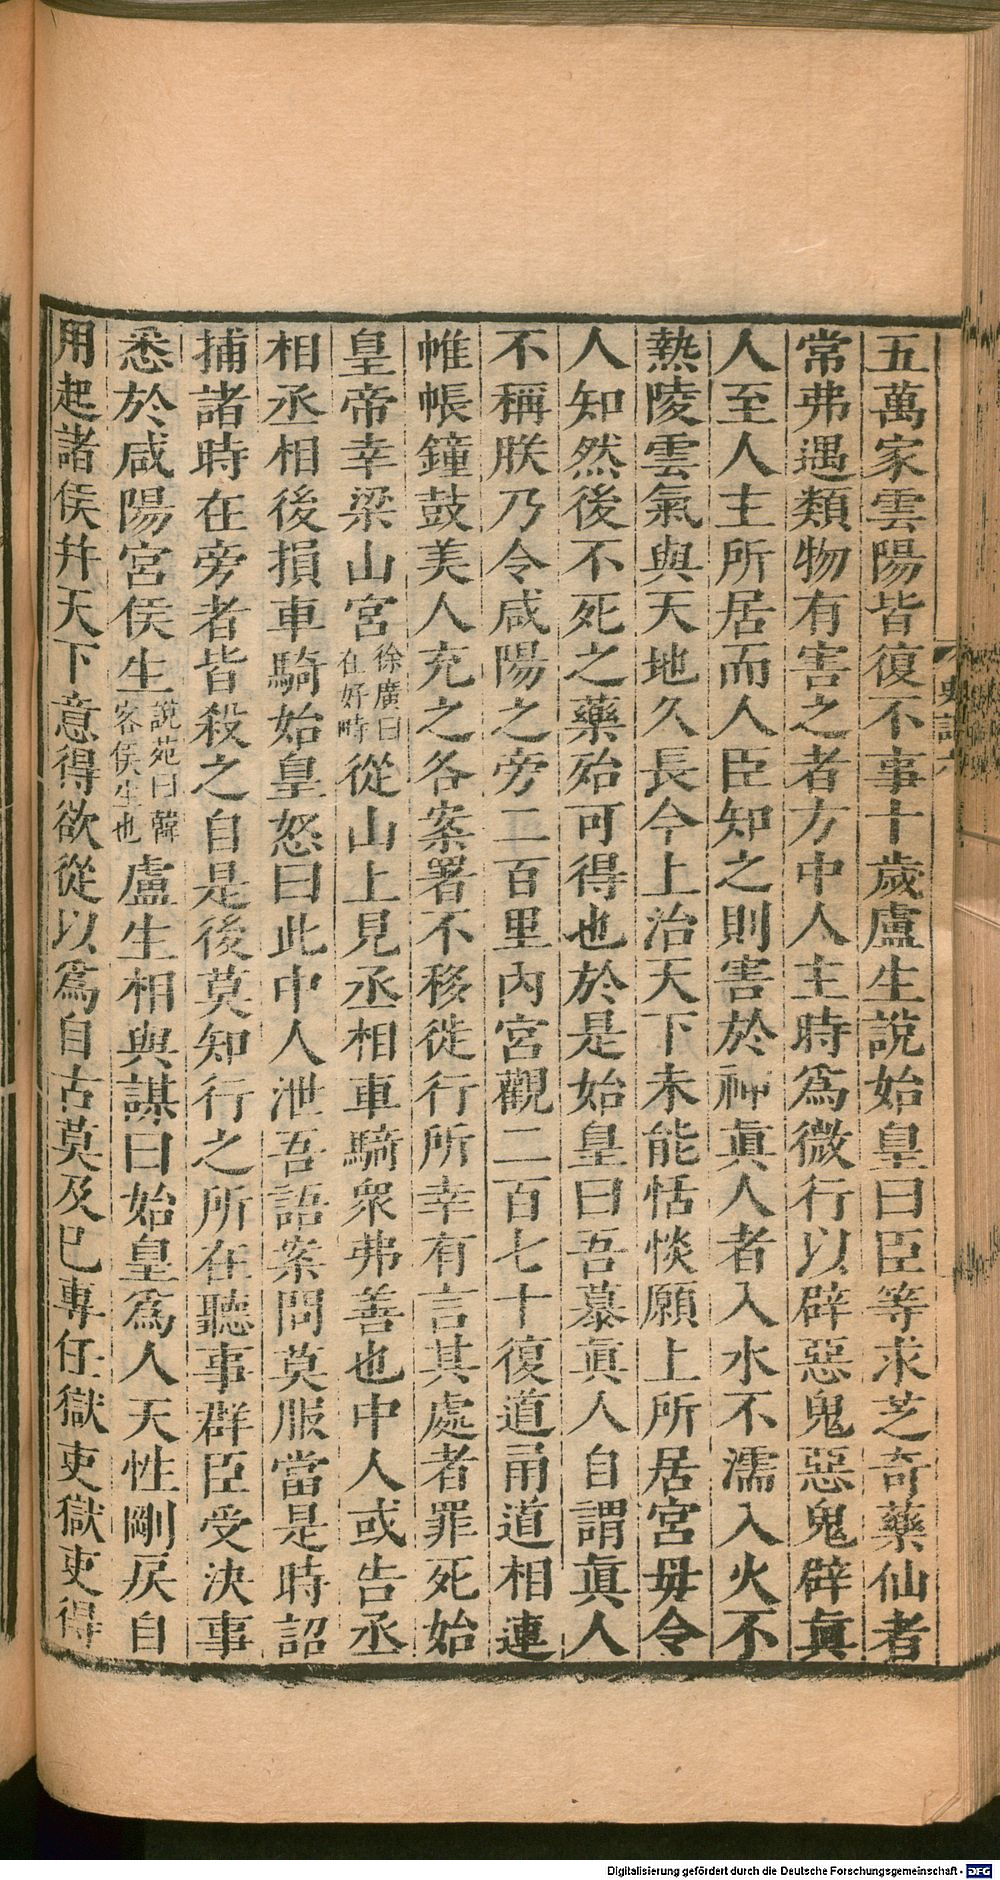 五萬家雲陽皆復不事十歲盧生說始皇曰臣等求芝奇藥仙者
常弗遇類物有害之者方中人主時爲微行以辟惡鬼惡鬼辟眞
人至人主所居而人臣知之則害於神眞人者入水不濡入火不
熱陵雲氣與天地久長今上治天下未能恬惔願上所居宮毋令
人知然後不死之藥殆可得也於是始皇曰吾慕眞人自謂眞人
不稱朕乃令咸陽之旁二百里內宮觀二百七十復道甬道相連
帷帳鐘鼓美人充之各案署不移徙行所幸有言其處者罪死始
皇帝幸梁山宮徐廣曰在好畤從山上見丞相車騎衆弗善也中人或告丞
相丞相後損車騎始皇怒曰此中人泄吾語案問莫服當是時詔
捕諸時在旁者皆殺之自是後莫知行之所在聽事群臣受決事
悉於咸陽宮侯生說苑曰韓客侯生也盧生相與謀曰始皇爲人天性剛戾自
用起諸侯幷天下意得欲從以爲自古莫及已專任獄吏獄吏得
Digitalisierung gefördert durch die Deutsche Forschungsgemeinschaft - DFG